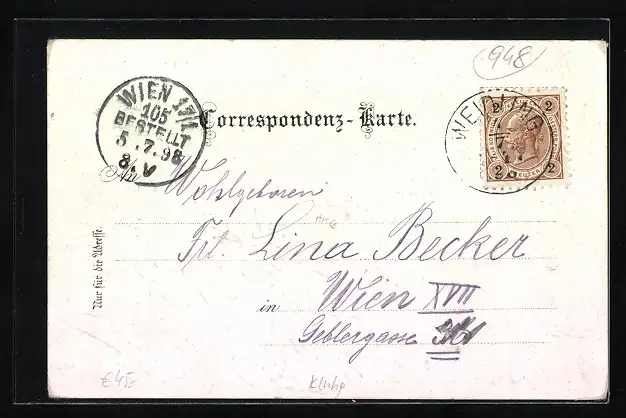 948
WIEN 17/1
105
BESTELLT
5.7.98
8.V
Correspondenz-Karte.
2 2
2 2
An Wohlgeboren
Frl. Lina Becker
in Wien XVII
Geblergasse
Nur für die Adresse.
€45-